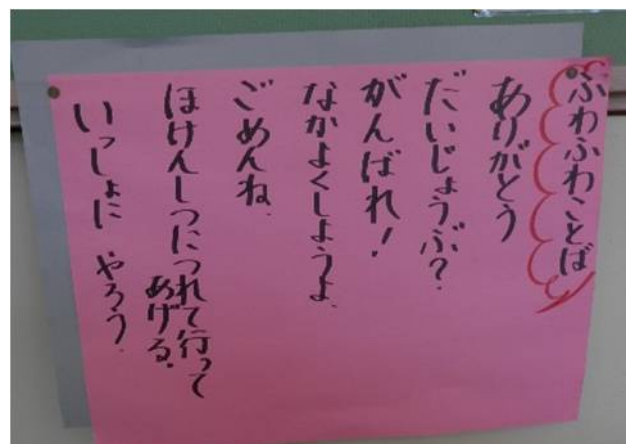 ふわふわことば
ありがとう
だいじょうぶ?
がんばれ!
なかよくしようよ、
ごめんね、
ほけんしつにつれて行って
あげる。
いっしょに やろう。